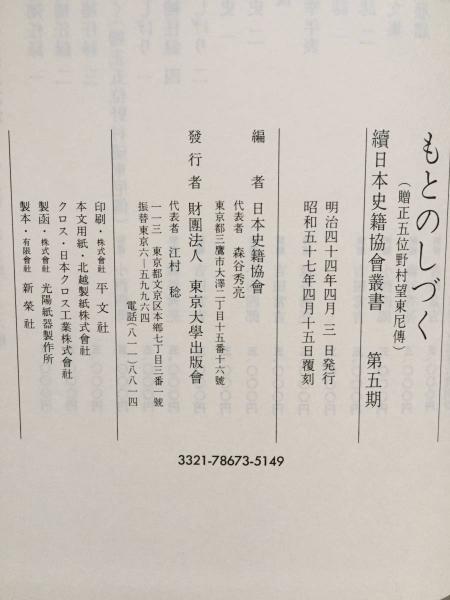 もとのしづく
（贈正五位野村望東尼傳）
續日本史籍協會叢書　第五期
明治四十四年四月　三　日発行
昭和五十七年四月十五日覆刻
編　者　日本史籍協會
代表者　森谷秀亮
東京都三鷹市大澤二丁目十五番十六號
發行者　財團法人　東京大學出版會
代表者　江村　稔
一一三　東京都文京区本郷七丁目三番一號
振替東京六―五九九六四　電話（八一一）八八一四
印刷・株式會社　平文社
本文用紙・北越製紙株式會社
クロス・日本クロス工業株式會社
製函・株式會社　光陽紙器製作所
製本・有限會社　新榮社
3321-78673-5149